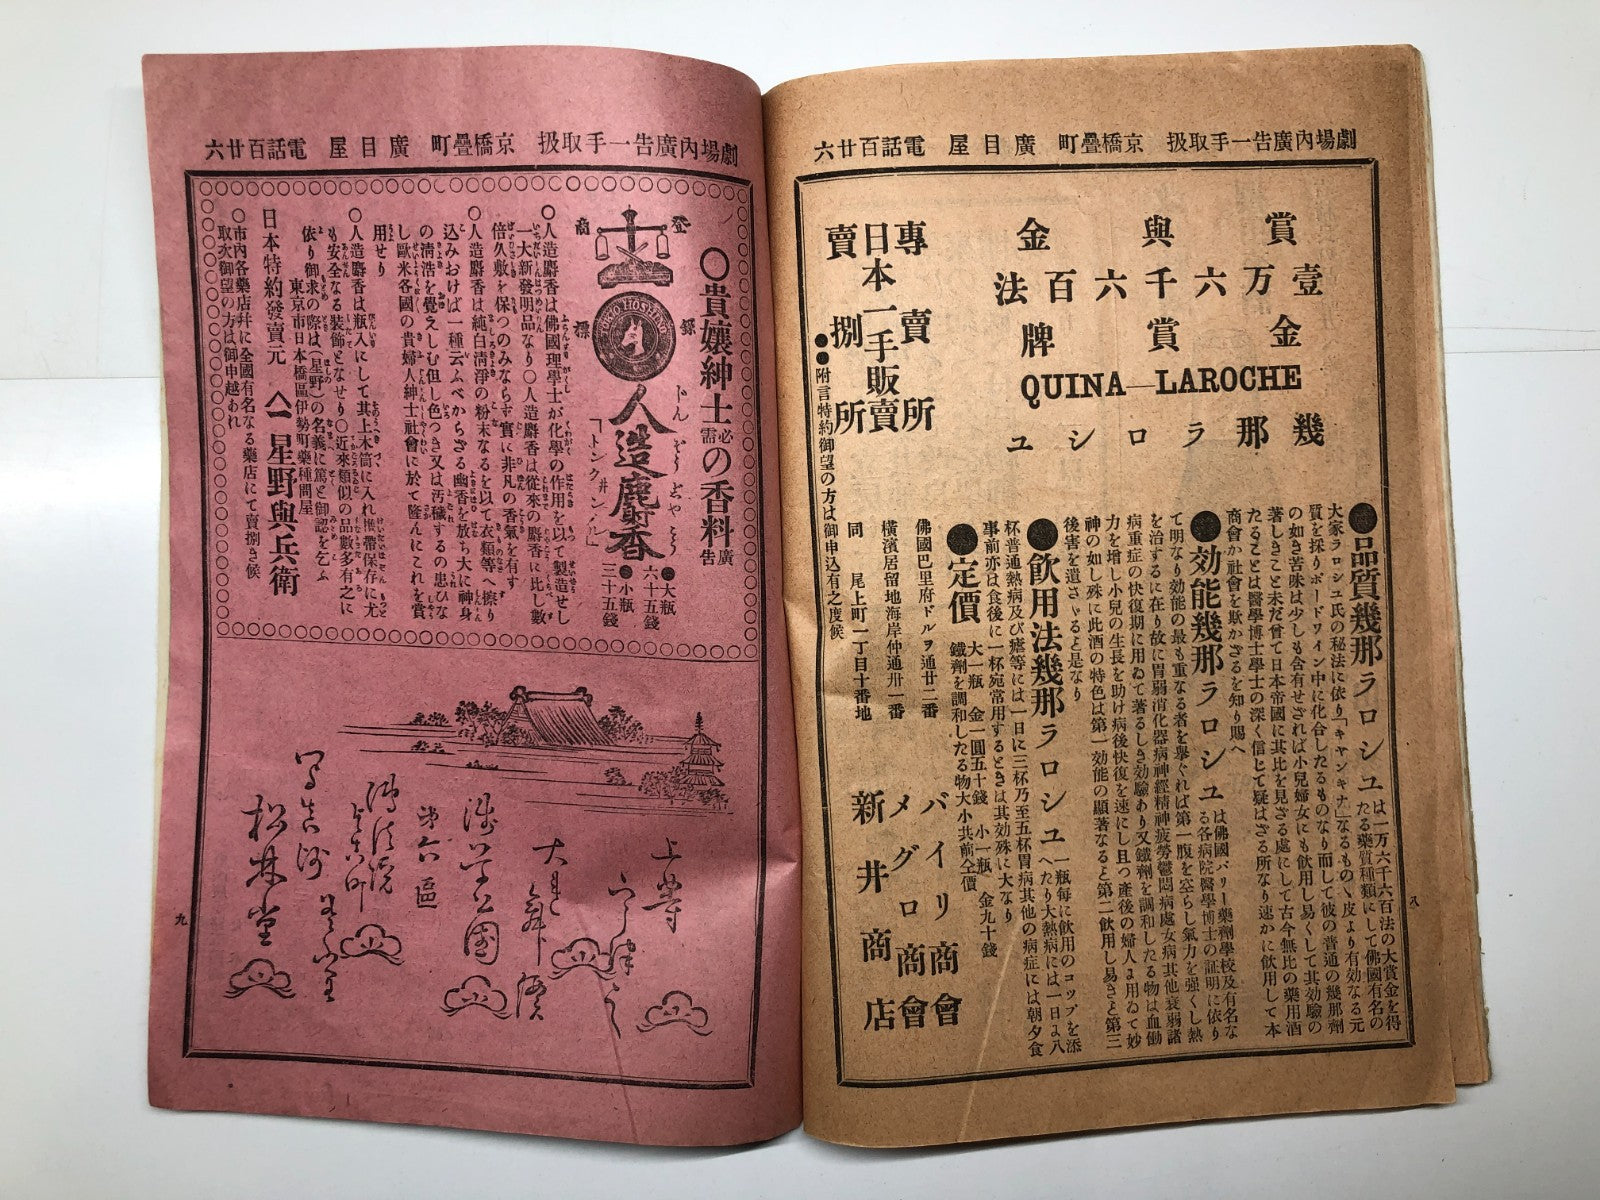 劇場內廣告一手取扱 京橋疊町 廣目屋 電話百廿六
賞與金
壹万六千六百法
金賞牌
QUINA—LAROCHE
幾那ラロシユ
●品質幾那ラロシユは一万六千六百法の大賞金を得たる藥質種類にして佛國有名の
大家ラロシユ氏の秘法に依り「キヤンキナ」なるもの、皮より有効なる元
質を採りボードワイン中に化合したるものなり而して彼の普通の幾那劑
の如き苦味は少しも含有せざれば小兒婦女にも飮用し易くして其効驗の
著しきこと未だ曾て日本帝國に其比を見ざる處にして古今無比の藥用酒
たることは醫學博士學士の深く信じて疑はざる所なり速かに飮用して本
商會か社會を欺かざるを知り賜へ
●効能幾那ラロシユは佛國パリー藥劑學校及有名なる各病院醫學博士の証明に依り
て明なり効能の最も重なる者を擧ぐれば第一腹を空らし氣力を強くし熱
を治するに在り故に胃弱消化器病神經精神疲勞鬱悶病處女病其他衰弱諸
病重症の快復期に用ゐて著るしき効驗あり又鐵劑を調和したる物は血働
力を增し小兒の生長を助け病後快復を速にし且つ產後の婦人に用ゐて妙
神の如し殊に此酒の特色は第一効能の顯著なると第二飮用し易きと第三
後害を遺さゞると是なり
●飮用法幾那ラロシユ一瓶每に飮用のコツプを添へたり大熱病には一日に八
杯普通熱病及び瘧等には一日に三杯乃至五杯胃病其他の病症には朝夕食
事前亦は食後に一杯宛常用するときは其効殊に大なり
●定價 大一瓶 金一圓五十錢 小一瓶 金九十錢
鐵劑を調和したる物大小共前仝價
佛國巴里府ドルヲ通廿二番 バイリー商會
橫濱居留地海岸仲通卅一番 メグロー商會
同 尾上町一丁目十番地 新井商店
專賣所
日本一手販賣
賣捌所
●●附言特約御望の方は御申込有之度候
八
劇場內廣告一手取扱 京橋疊町 廣目屋 電話百廿六
○貴孃紳士必需の香料廣告
登錄商標
TOKO HOSHINO
人造麝香
じんぞうじやこう
「トンクヰンノル」
●大瓶 六十五錢
●小瓶 三十五錢
○人造麝香は佛國理學士が化學の作用を以て製造せし
一大新發明品なり○人造麝香は從來の麝香に比し數
倍久敷を保つのみならず實に非凡の香氣を有す
○人造麝香は純白淸淨の粉末なるを以て衣類等へ擦り
込みおけば一種云ふべからざる幽香を放ち大に神身
の淸浩を覺えしむ但し色つき又は汚穢するの患ひな
し歐米各國の貴婦人紳士社會に於て隆んにこれを賞
用せり
○人造麝香は瓶入にして其上木筒に入れ懷帶保存に尤
も安全なる裝飾となせり○近來類似の品數多有之に
依り御求の際は(星野)の名義に篤と御認を乞ふ
東京市日本橋區伊勢町藥種問屋
日本特約發賣元 星野與兵衛
○市內各藥店幷に全國有名なる藥店にて賣捌き候
取次御望の方は御申越あれ
上野
大
淺草公園
第六區
松林堂
九